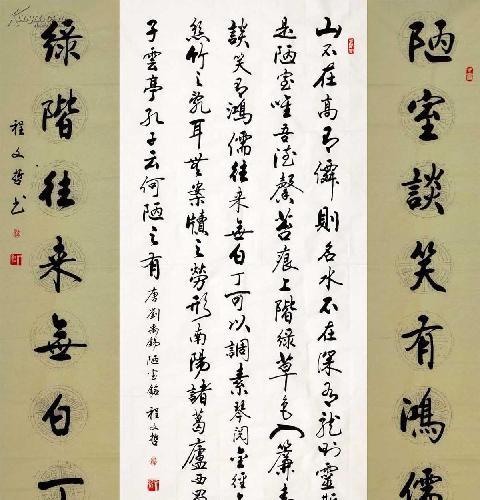 陋室談笑有鴻儒
山不在高有僊則名水不在深有龍則靈斯
是陋室唯吾德馨苔痕上階綠草色入簾青
談笑有鴻儒往来無白丁可以調素琴閱金經
絲竹之亂耳無案牘之勞形南陽諸葛廬西蜀
子雲亭孔子云何陋之有 唐劉禹錫陋室銘 程文哲
綠階往来無白丁
程文哲书